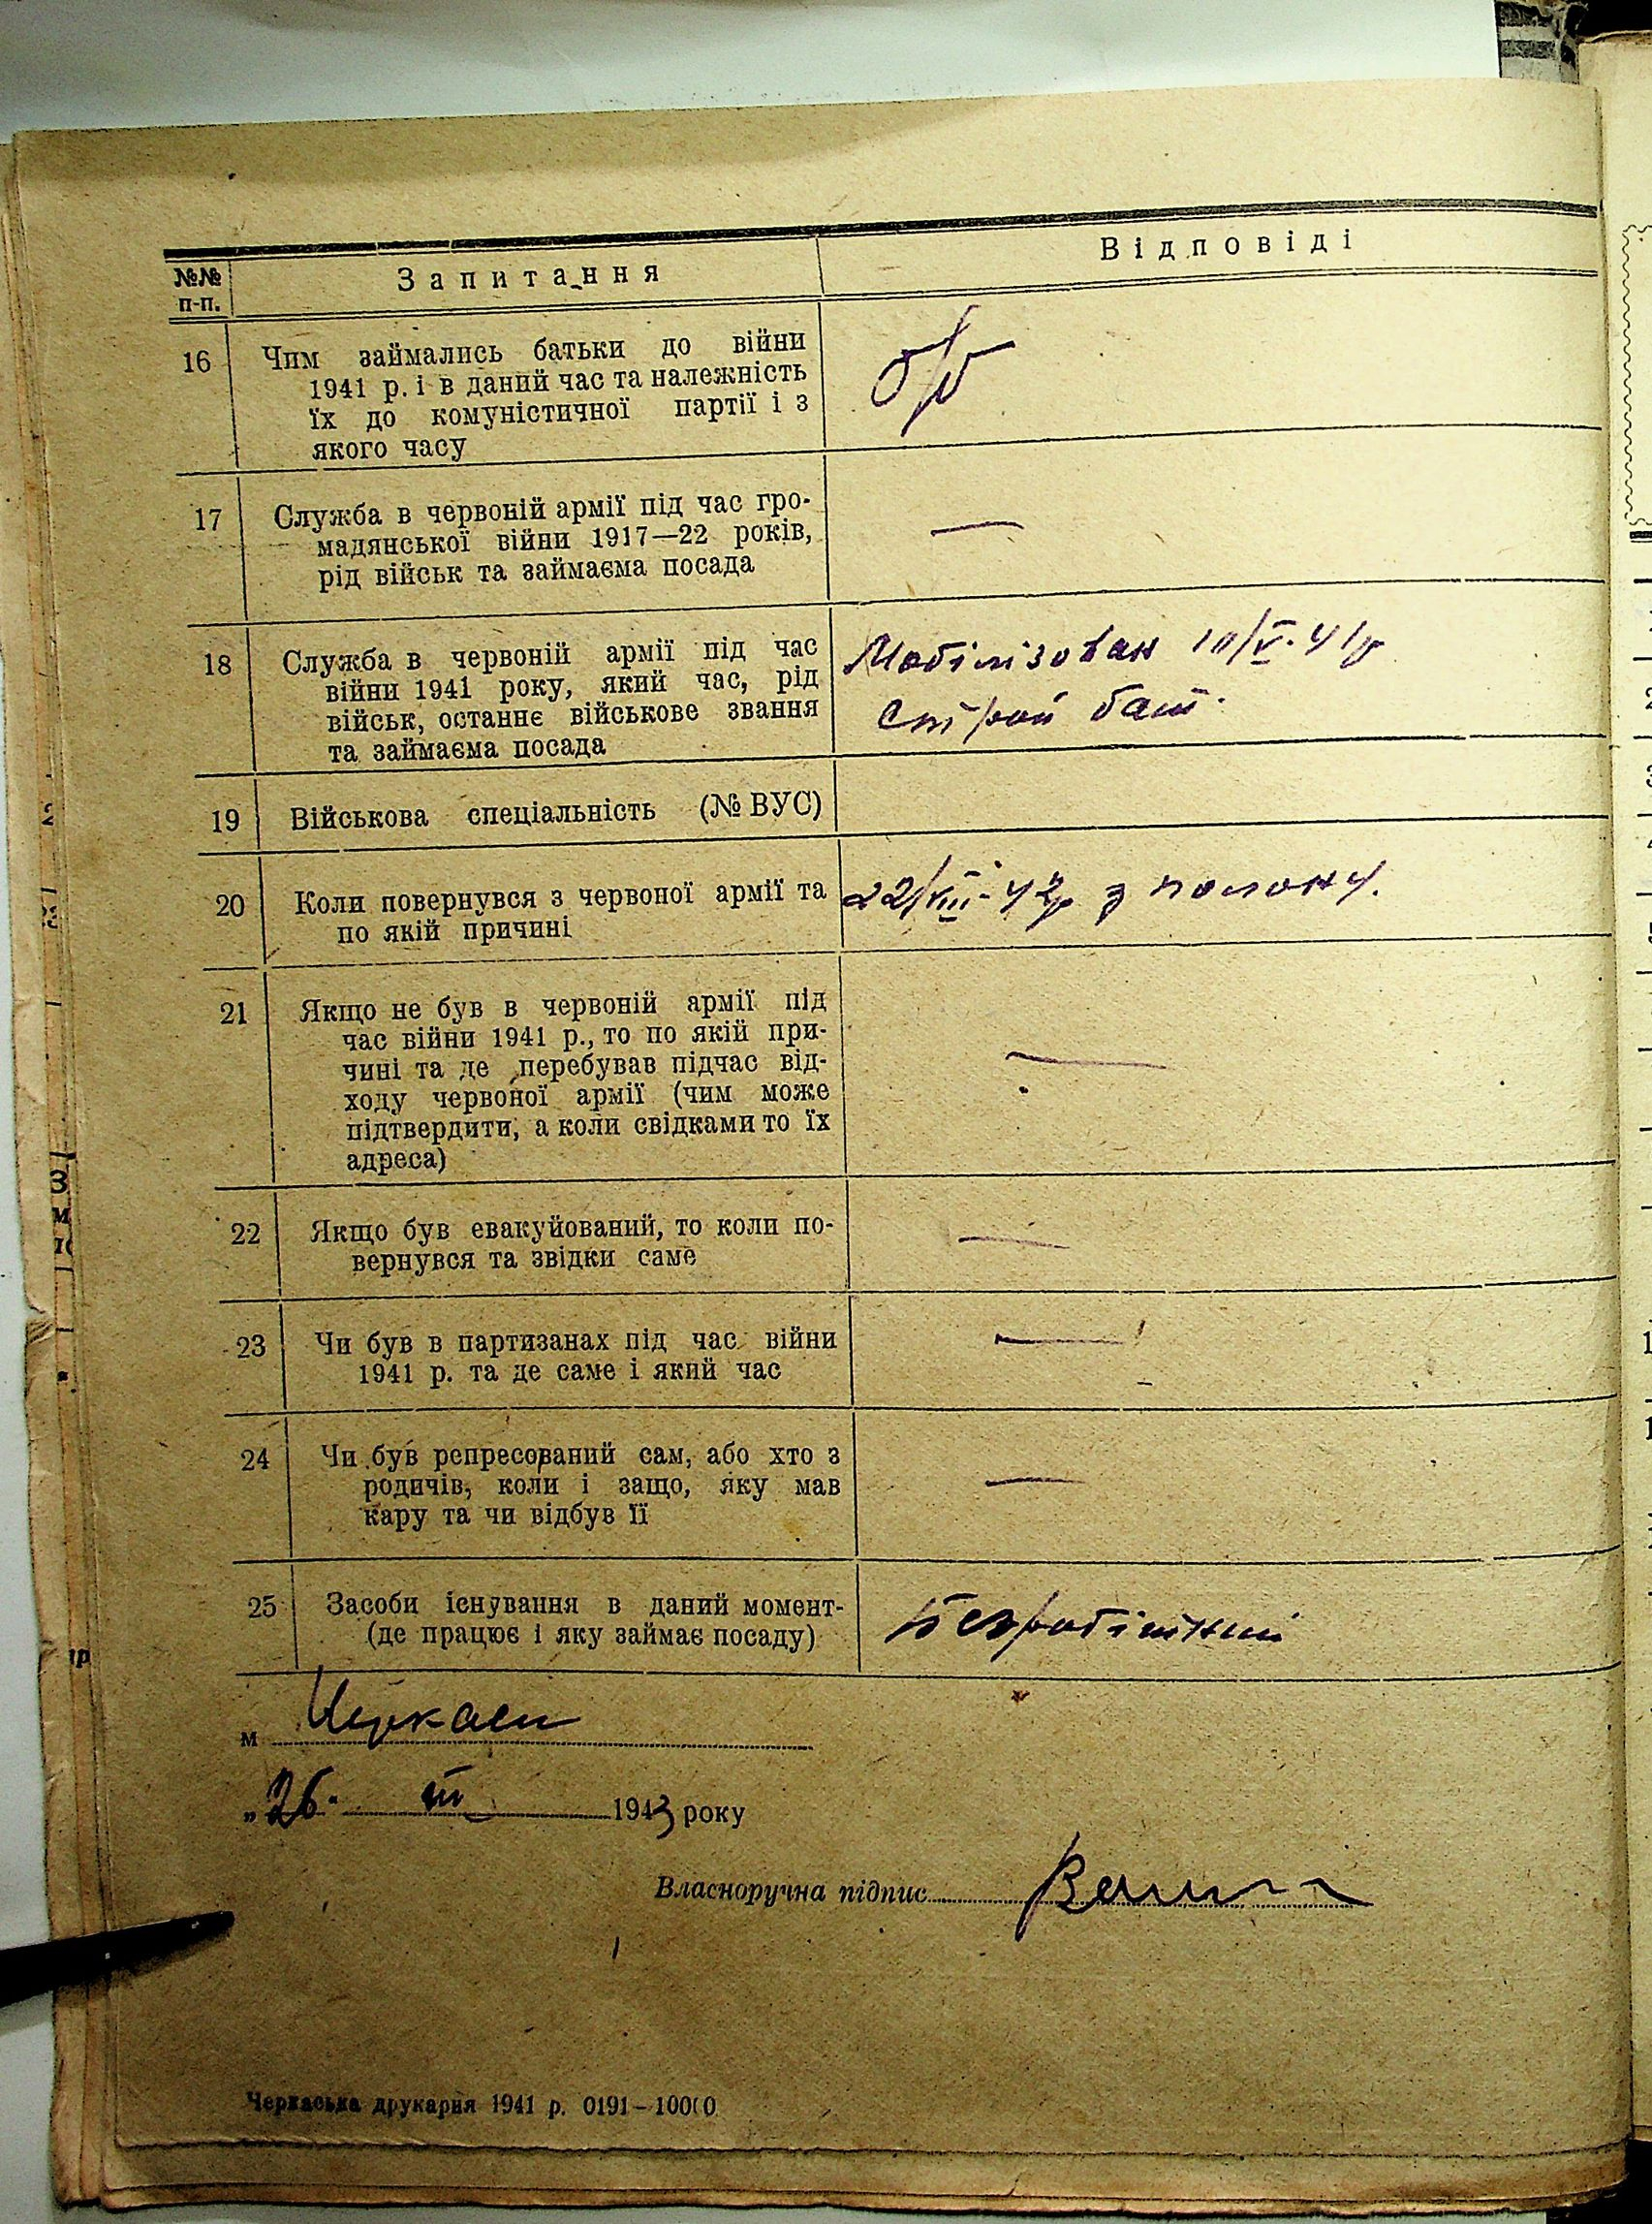 №№ п-п.
Запитання
Відповіді
16
Чим займались батьки до війни
1941 р. і в даний час та належність
їх до комуністичної партії і з
якого часу
б/п
17
Служба в червоній армії під час гро-
мадянської війни 1917—22 років,
рід військ та займаєма посада
—
18
Служба в червоній армії під час
війни 1941 року, який час, рід
військ, останнє військове звання
та займаєма посада
Мобілізован 10/V-41р
строй бат.
19
Військова спеціальність (№ ВУС)
20
Коли повернувся з червоної армії та
по якій причині
22/VIII-42р з полону.
21
Якщо не був в червоній армії під
час війни 1941 р., то по якій при-
чині та де перебував підчас від-
ходу червоної армії (чим може
підтвердити, а коли свідками то їх
адреса)
—
22
Якщо був евакуйований, то коли по-
вернувся та звідки саме
—
23
Чи був в партизанах під час війни
1941 р. та де саме і який час
—
24
Чи був репресований сам, або хто з
родичів, коли і защо, яку мав
кару та чи відбув її
—
25
Засоби існування в даний момент-
(де працює і яку займає посаду)
Безробітний
м Черкаси
„26" III 1943 року
Власноручна підпис
Черкаська друкарня 1941 р. 0191–10000